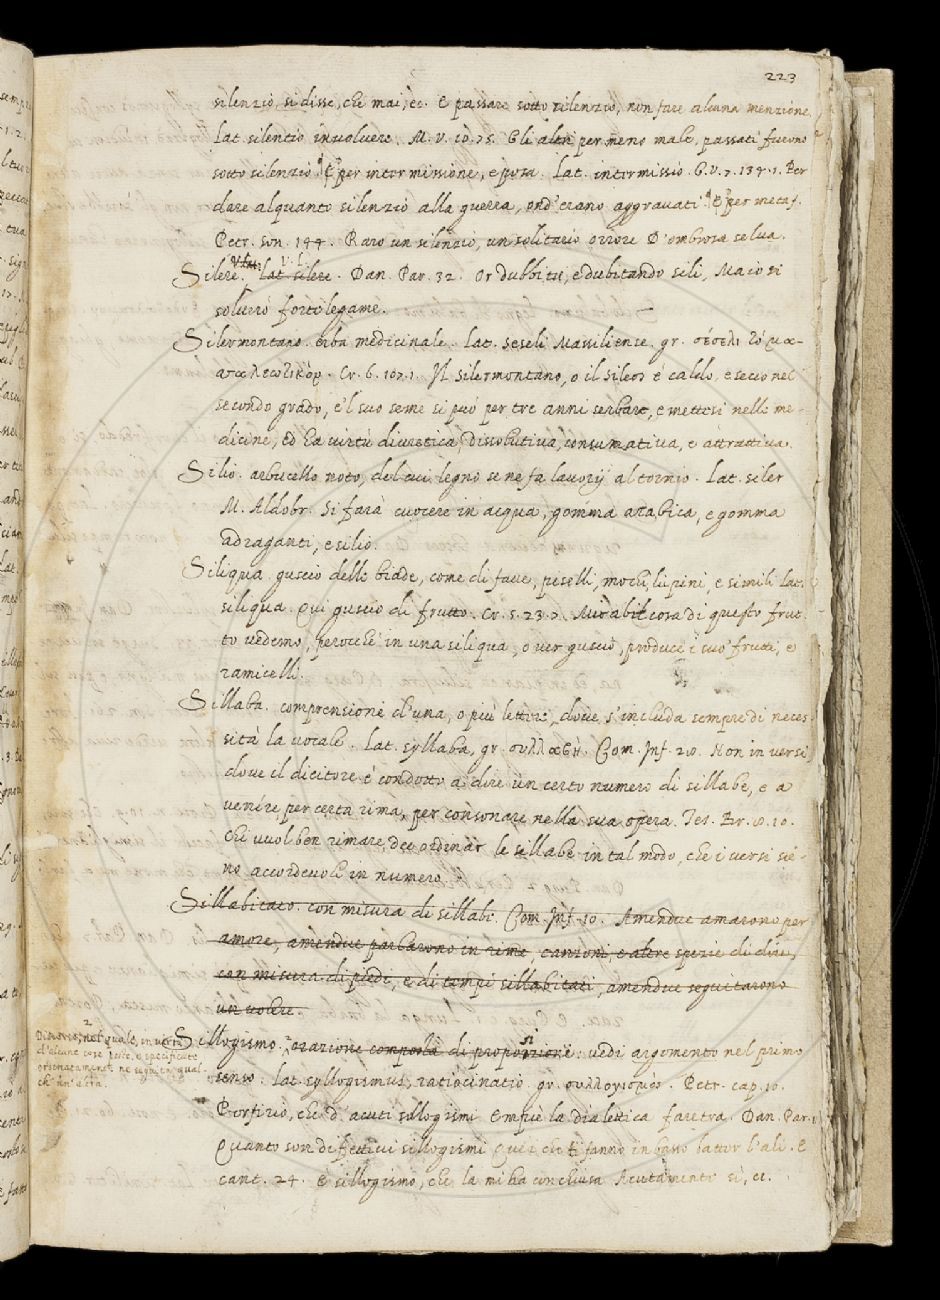 223
silenzio, si disse, che mai, ec. E passare sotto silenzio, non fare alcuna menzione,
Lat. silentio involvere. M. V. 10. 75. Gli altri per meno male, passati furono
sotto silenzio. E per intermissione, e posa. Lat. intermissio. G. V. 7. 134. 1. Per
dare alquanto silenzio alla guerra, ond'erano aggravati. E per metaf.
Petr. son. 144. Raro un silenzio, un solitario orrore D'ombrosa selva.
Silere. V. L. Lat. silere. Dan. Par. 32. Or dubbi tu, e dubitando sili, Ma io ti
solverò forte legame.
Silermontano. erba medicinale. Lat. Seseli Massiliense. gr. σέσελι
Cr. 6. 107. 1. Il Silermontano, o il Sileos è caldo, e secco nel
secondo grado, e'l suo seme si può per tre anni serbare, e mettesi nelle me-
dicine, ed ha virtù diuretica, dissolutiva, consumativa, e attrattiva.
Silio. arbucello noto, del cui legno se ne fa lavorij al tornio. Lat. siler
M. Aldobr. Si farà cuocere in acqua, gomma arabica, e gomma
adraganti, e silio.
Siliqua. guscio delle biade, come di fave, piselli, mochi, lupini, e simili. Lat.
siliqua. Qui guscio di frutto. Cr. 5. 23. 7. Mirabil cosa di questo frut-
to vedemo, perocchè in una siliqua, o ver guscio, produce i suo' frutti, e
ramicelli.
Sillaba. comprensione d'una, o più lettere, dove s'includa sempre di neces-
sità la vocale. Lat. syllaba, gr. συλλαβή. Com. Inf. 20. Non in versi
dove il dicitore è condotto a dire un certo numero di sillabe, e a
venire per certa rima, per consonare nella sua opera. Tes. Br. 8. 10.
chi vuol ben rimare, dee ordinar le sillabe in tal modo, che i versi sie-
no accordevoli in numero.
Sillabicato. con misura di sillabe. Com. Inf. 10. Amendue amarono per
amore, amendue parlarono in rime, canzoni, e altre spezie di dire,
con misura di piedi, e di tempi sillabicati, amendue seguitarono
un volere.
2
Discorso, nel quale, in virtù
d'alcune cose poste, e specificate
ordinatamente ne seguita qual
ch'un'altra.
Sillogismo. orazione composta di proposizione: vedi argomento nel primo
senso. Lat. syllogismus, ratiocinatio. gr. συλλογισμός. Petr. cap. 10.
Porfirio, che d'acuti sillogismi Empiè la dialettica faretra. Dan. Par. 11
Quanto son difettivi sillogismi Quei che ti fanno in basso batter l'ali. E
cant. 24. È sillogismo, che la mi ha conchiusa Acutamente sì, ec.